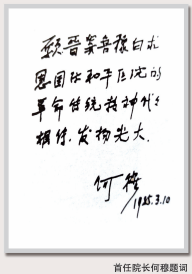 愿晋察冀白求
恩国际和平医院的
革命传统精神代代
相传，发扬光大。
何穆
1985.3.10
首任院长何穆题词